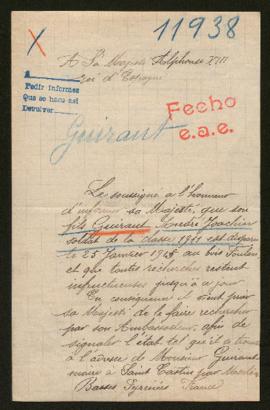 11938
A Sa Majesté Alphonse XIII
roi d'Espagne
A
Pedir informes
Que se hace así
Devolver
Fecho
e.a.e.
Guiraut
Le soussigné a l'honneur
d'informer sa Majesté, que son
fils Guiraut Joachin
soldat de la classe 1911 est disparu
le 25 Janvier 1915 au bois Foulon
et que toutes recherches restent
infructueuses jusqu'à ce jour
En conséquence il vient prier
sa Majesté de le faire rechercher
par son Ambassadeur, afin de
signaler l'état tel qu'il a trouvé
à l'adresse de Monsieur Guiraut
maire à Saint Castin par Morlaàs
Basses Pyrénées France